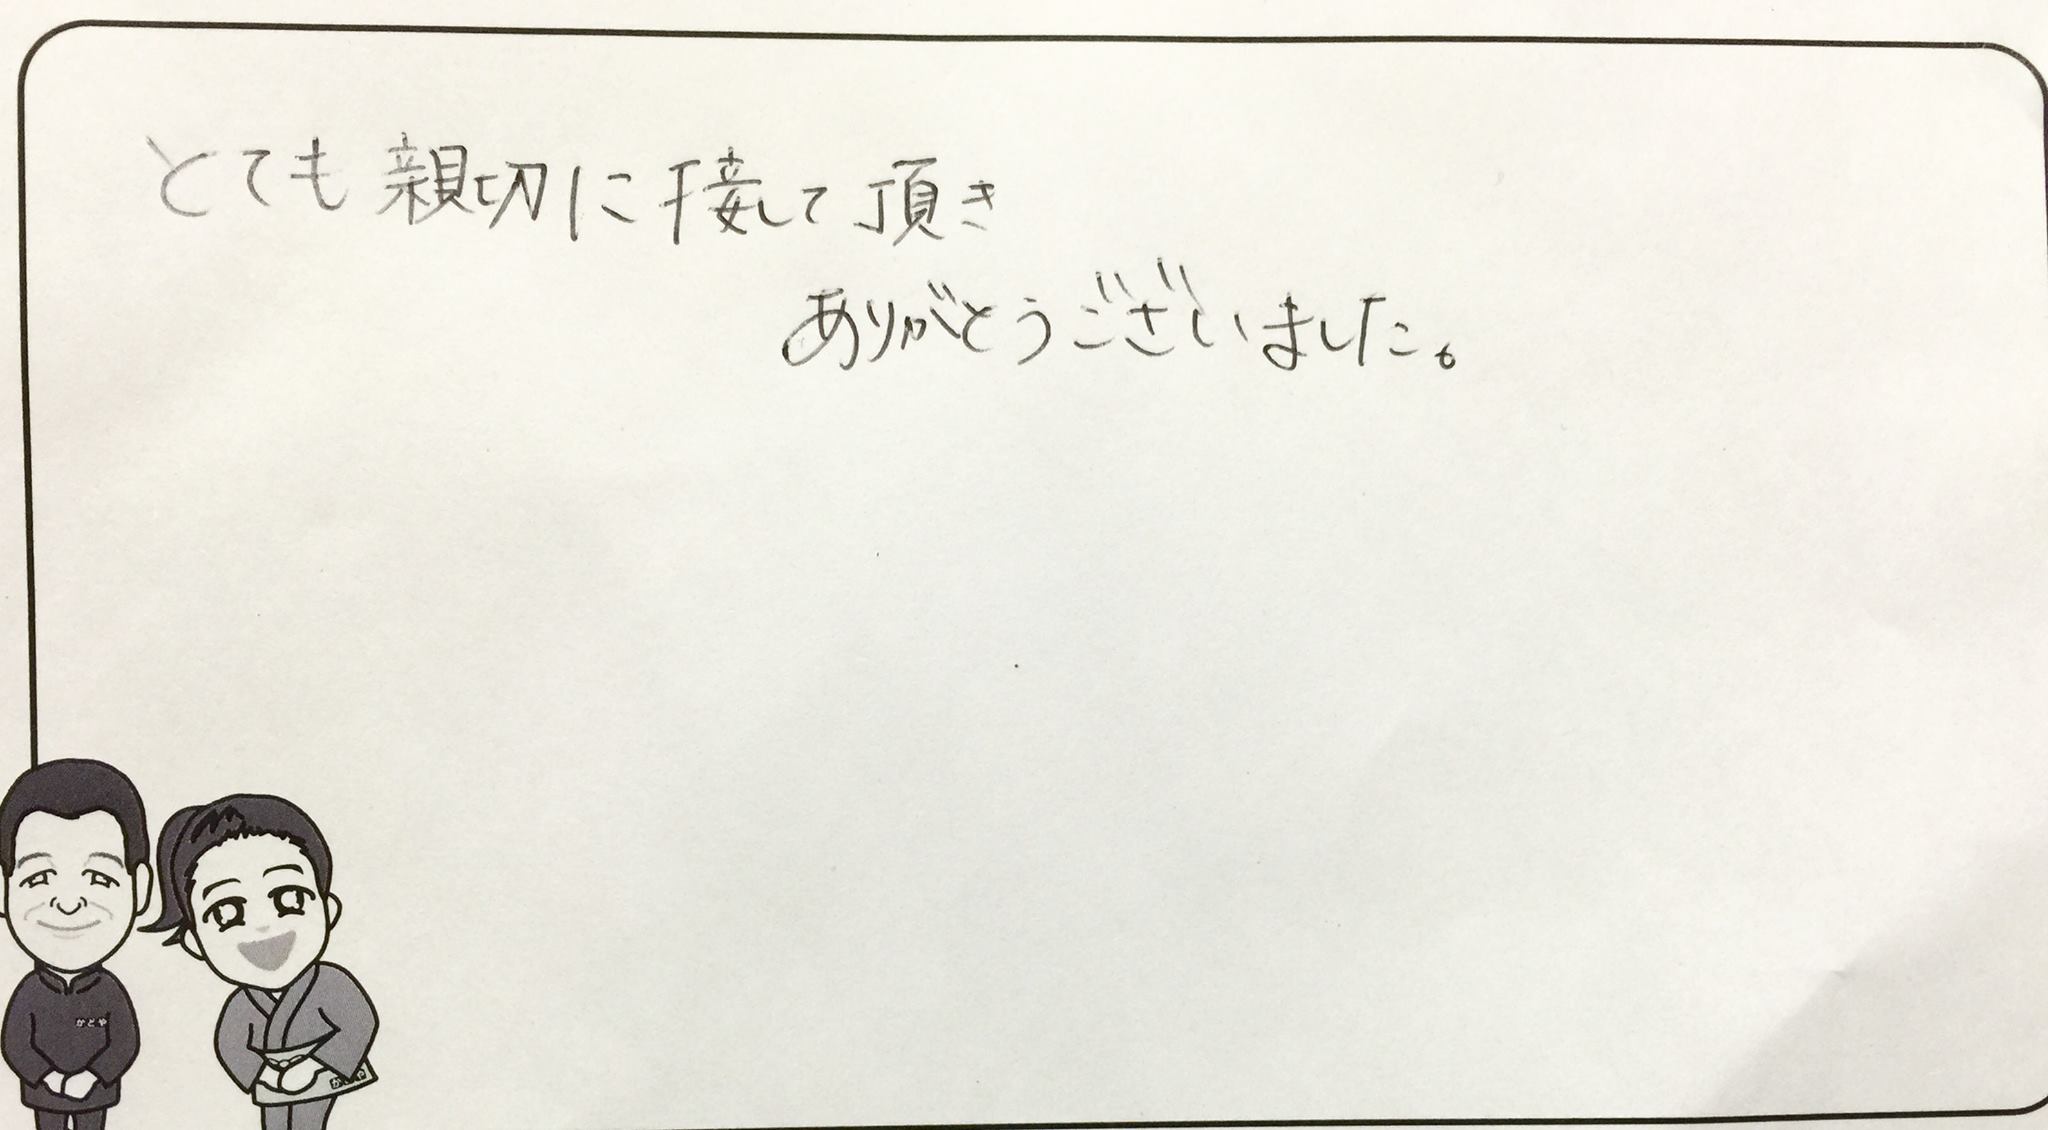 とても親切に接して頂き
ありがとうございました。
かどや